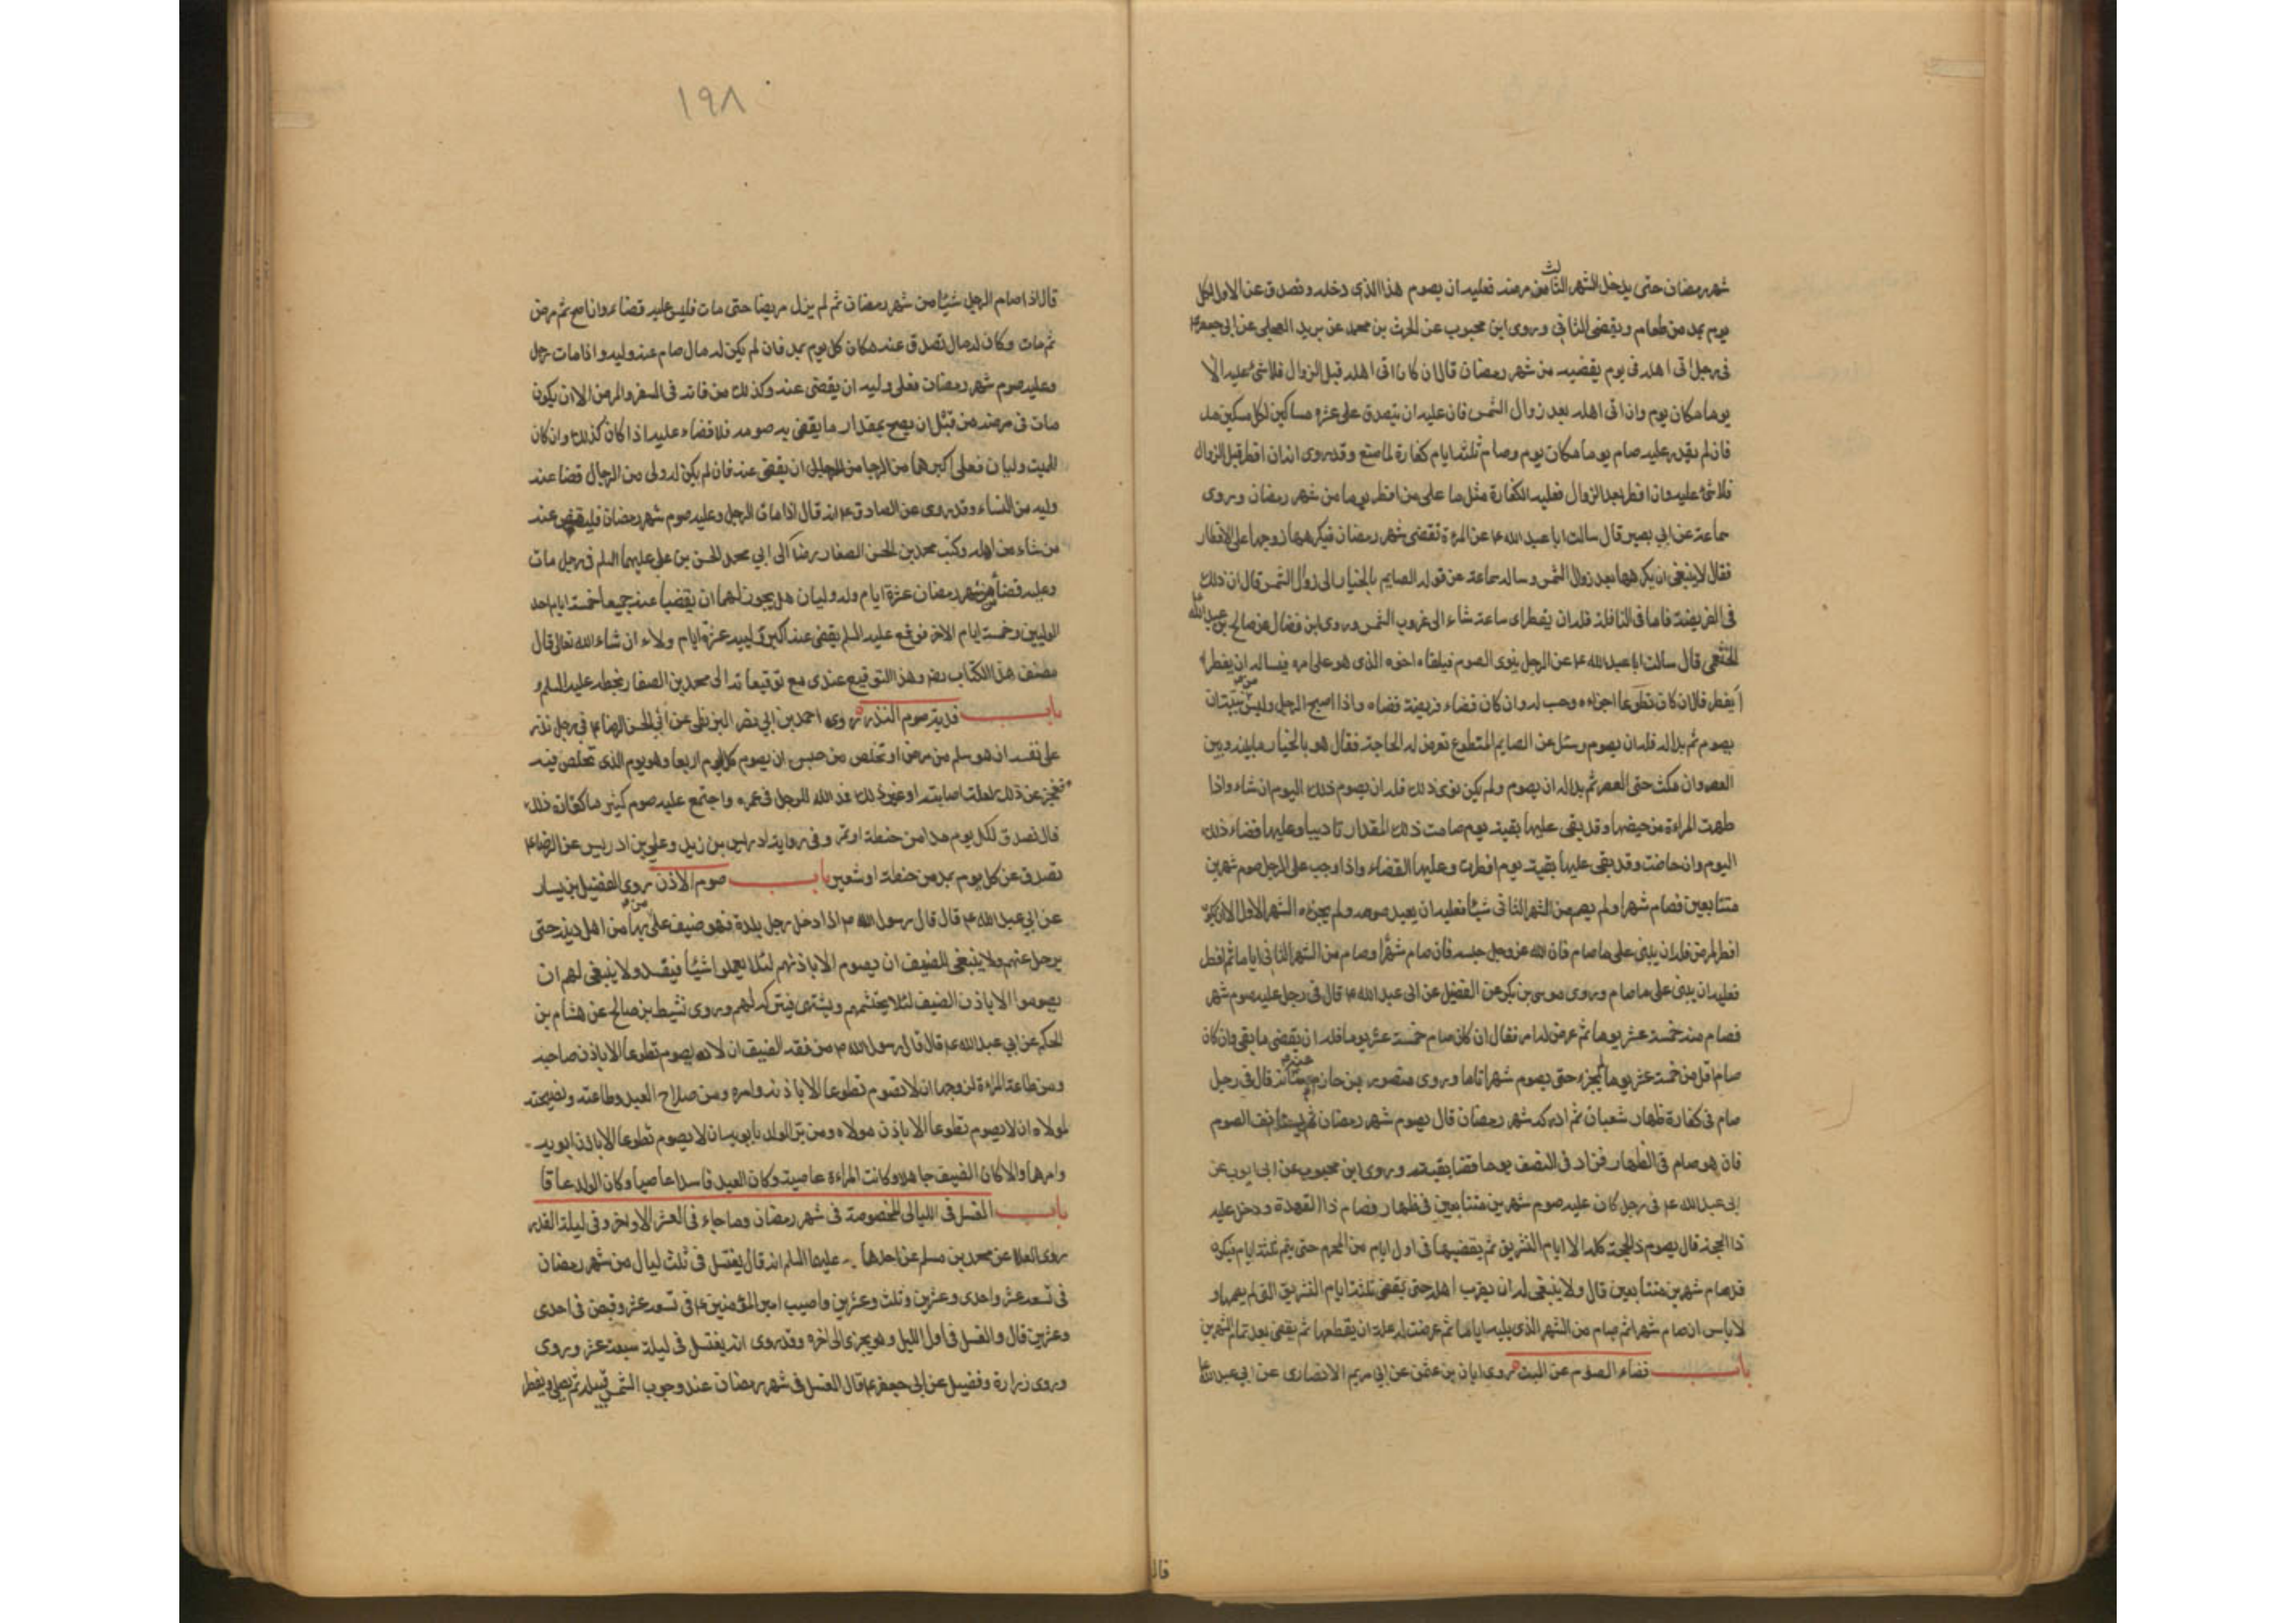 شهر رمضان حتى يدخل الشهر الثالث من مرضه فعليه ان يصوم هذا الذى دخله وتصدق عن الاول لكل
يوم بمد من طعام ويقضى الثانى وروى ابن محبوب عن الحرث بن محمد عن بريد العجلى عن ابى جعفر ع
فى رجل اتى اهله فى يوم يقضيه من شهر رمضان قال ان كان اتى اهله قبل الزوال فلا شئ عليه الا
يوما مكان يوم وان اتى اهله بعد زوال الشمس فان عليه ان يتصدق على عشره مساكين لكل مسكين مد
فان لم يقدر عليه صام يوما مكان يوم وصام ثلثة ايام كفارة لما صنع وقد روى انه ان افطر قبل الزوال
فلا شئ عليه وان افطر بعد الزوال فعليه الكفارة مثل ما على من افطر يوما من شهر رمضان وروى
سماعة عن ابي بصير قال سالت ابا عبد الله ع عن المرءة تقضى شهر رمضان فيكرهها زوجها على الافطار
فقال لا ينبغى ان يكرهها بعد زوال الشمس وساله سماعة عن قوله الصايم بالخيار الى زوال الشمس قال ان ذلك
فى الفريضة فاما فى النافلة فله ان يفطر اى ساعة شاء الى غروب الشمس وروى ابن فضال عن صالح بن عبد الله
الخثعمى قال سالت ابا عبد الله ع عن الرجل ينوى الصوم فيلقاه اخوه الذى هو على امره فيساله ان يفطر ا
يفطر قال ان كان تطوعا اجزاءه وحسب له وان كان قضاء فريضة قضاه واذا اصبح الرجل وليس من نيته ان
يصوم ثم بدا له فله ان يصوم وسئل عن الصايم المتطوع تعرض له الحاجة فقال هو بالخيار ما بينه وبين
العصر وان مكث حتى العصر ثم بدا له ان يصوم ولم يكن نوى ذلك فله ان يصوم ذلك اليوم ان شاء واذا
طهرت المراءة من حيضها وقد بقى عليها بقية يوم صامت ذلك المقدار تاديبا وعليها قضاء ذلك
اليوم وان حاضت وقد بقى عليها بقية يوم افطرت وعليها القضاء واذا وجب على الرجل صوم شهرين
متتابعين فصام شهرا ولم يصم من الشهر الثانى شيئا فعليه ان يعيد صومه ولم يجزءه الشهر الاول الا ان يكون
افطر لمرض فله ان يبنى على ما صام فان الله عز وجل حبسه فان صام شهرا وصام من الشهر الثانى اياما ثم افطر
فعليه ان يبنى على ما صام وروى موسى بن بكر عن الفضيل عن ابى عبد الله ع قال فى رجل عليه صوم شهر
فصام منه خمسة عشر يوما ثم عرض له امر فقال ان كان صام خمسة عشر يوما فله ان يقضى ما بقى وان كان
صام اقل من خمسة عشر يوما لم يجزء حتى يصوم شهرا تاما وروى منصور بن حازم عنه ع انه قال فى رجل
صام فى كفارة ظهار شعبان ثم ادركه شهر رمضان قال يصوم شهر رمضان ثم يستانف الصوم
فان هو صام فى الظهار فزاد فى النصف يوما قضا بقيته وروى ابن محبوب عن ابى ايوب عن
ابى عبد الله ع فى رجل كان عليه صوم شهرين متتابعين فى ظهار فصام ذا القعدة ودخل عليه
ذا الحجة قال يصوم ذا الحجة كله الا ايام التشريق ثم يقضيها فى اول ايام من المحرم حتى يتم ثلثة ايام فيكون
قد صام شهرين متتابعين قال ولا ينبغى له ان يقرب اهله حتى يقضى ثلثة ايام التشريق التى لم يصمها و
لا باس ان صام شهرا ثم صام من الشهر الذى يليه اياما ثم عرضت له علة ان يقطعها ثم يقضى بعد تمام الشهرين
باب قضاء الصوم عن الميت روى ابان بن عثمن عن ابي مريم الانصارى عن ابي عبد الله ع
قال
١٩٨
قال اذا صام الرجل شيئا من شهر رمضان ثم لم يزل مريضا حتى مات فليس عليه قضاء وان صح ثم مرض
ثم مات وكان له مال تصدق عنه مكان كل يوم بمد فان لم يكن له مال صام عنه وليه واذا مات رجل
وعليه صوم شهر رمضان فعلى وليه ان يقضى عنه وكذلك من فاته فى السفر والمرض الا ان يكون
مات فى مرضه من قبل ان يصح بمقدار ما يقضى به صومه فلا قضاء عليه اذا كان كذلك وان كان
للميت وليان فعلى اكبرهما من الرجال ان يقضى عنه فان لم يكن له ولى من الرجال قضا عنه
وليه من النساء وقد روى عن الصادق ع انه قال اذا مات الرجل وعليه صوم شهر رمضان فليقض عنه
من شاء من اهله وكتب محمد بن الحسن الصفار رضا الى ابي محمد الحسن بن على عليهما السلم فى رجل مات
وعليه قضاء من شهر رمضان عشرة ايام وله وليان هل يجوز لهما ان يقضيا عنه جميعا خمسة ايام احد
الوليين وخمسة ايام الاخر فوقع عليه السلم يقضى عنه اكبر ولييه عشرة ايام ولاء ان شاء الله تعالى قال
مصنف هذا الكتاب رضه وهذا التوقيع عندى مع توقيعاته الى محمد بن الصفار بخطه عليه السلم
باب فدية صوم النذر روى احمد بن ابي نصر البزنطى عن ابي الحسن الرضا ع فى رجل نذر
على نفسه ان هو سلم من مرض او تخلص من حبس ان يصوم كل يوم اربعا وهو يوم الذى تخلص فيه
فعجز عن ذلك لعلة اصابته او غير ذلك فمد الله للرجل فى عمره واجتمع عليه صوم كثير ما كفارة ذلك
قال تصدق لكل يوم مدا من حنطة او تمر وفى رواية ادريس بن زيد وعلي بن ادريس عن الرضا ع
تصدق عن كل يوم بمد من حنطة او شعير باب صوم الاذن روى الفضيل بن يسار
عن ابي عبد الله ع قال قال رسول الله ص اذا دخل رجل بلدة فهو ضيف على من بها من اهل دينه حتى
يرحل عنهم ولا ينبغى للضيف ان يصوم الا باذنهم لئلا يعملوا شيئا فيفسد ولا ينبغى لهم ان
يصوموا الا باذن الضيف لئلا يحتشمهم ويشتهى فيتركه لهم وروى نشيط بن صالح عن هشام بن
الحكم عن ابي عبد الله ع قال قال رسول الله ص من فقه الضيف ان لا يصوم تطوعا الا باذن صاحبه
ومن طاعة المراءة لزوجها ان لا تصوم تطوعا الا باذنه وامره ومن صلاح العبد وطاعته ونصيحته
لمولاه ان لا يصوم تطوعا الا باذن مولاه ومن بر الولد بابويه ان لا يصوم تطوعا الا باذن ابويه
وامرهما والا كان الضيف جاهلا وكانت المراءة عاصية وكان العبد فاسدا عاصيا وكان الولد عاقا
باب الغسل فى الليالى المخصوصة فى شهر رمضان وما جاء فى العشر الاواخر وفى ليلة القدر
روى العلا عن محمد بن مسلم عن احدهما عليهما السلم انه قال يغتسل فى ثلث ليال من شهر رمضان
فى تسعة عشر واحدى وعشرين وثلث وعشرين واصيب امير المؤمنين ع فى تسعة عشر وقبض فى احدى
وعشرين قال والغسل فى اول الليل وهو يجزى الى اخره وقد روى انه يغتسل فى ليلة سبعة عشر وروى
وروى زرارة وفضيل عن ابى جعفر ع قال الغسل فى شهر رمضان عند وجوب الشمس قبيله ثم يصلى ويفطر